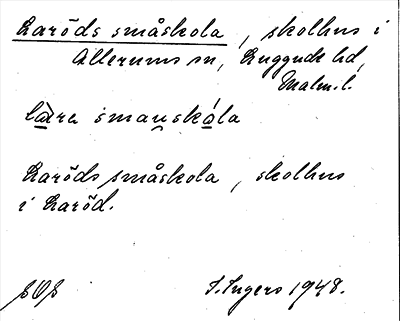 Laröds småskola, skolhus i
Allerums sn, Luggude hd,
Malm.l.
làra smauskóla
Laröds småskola, skolhus
i Laröd.
SOS I. Ingers 1948.